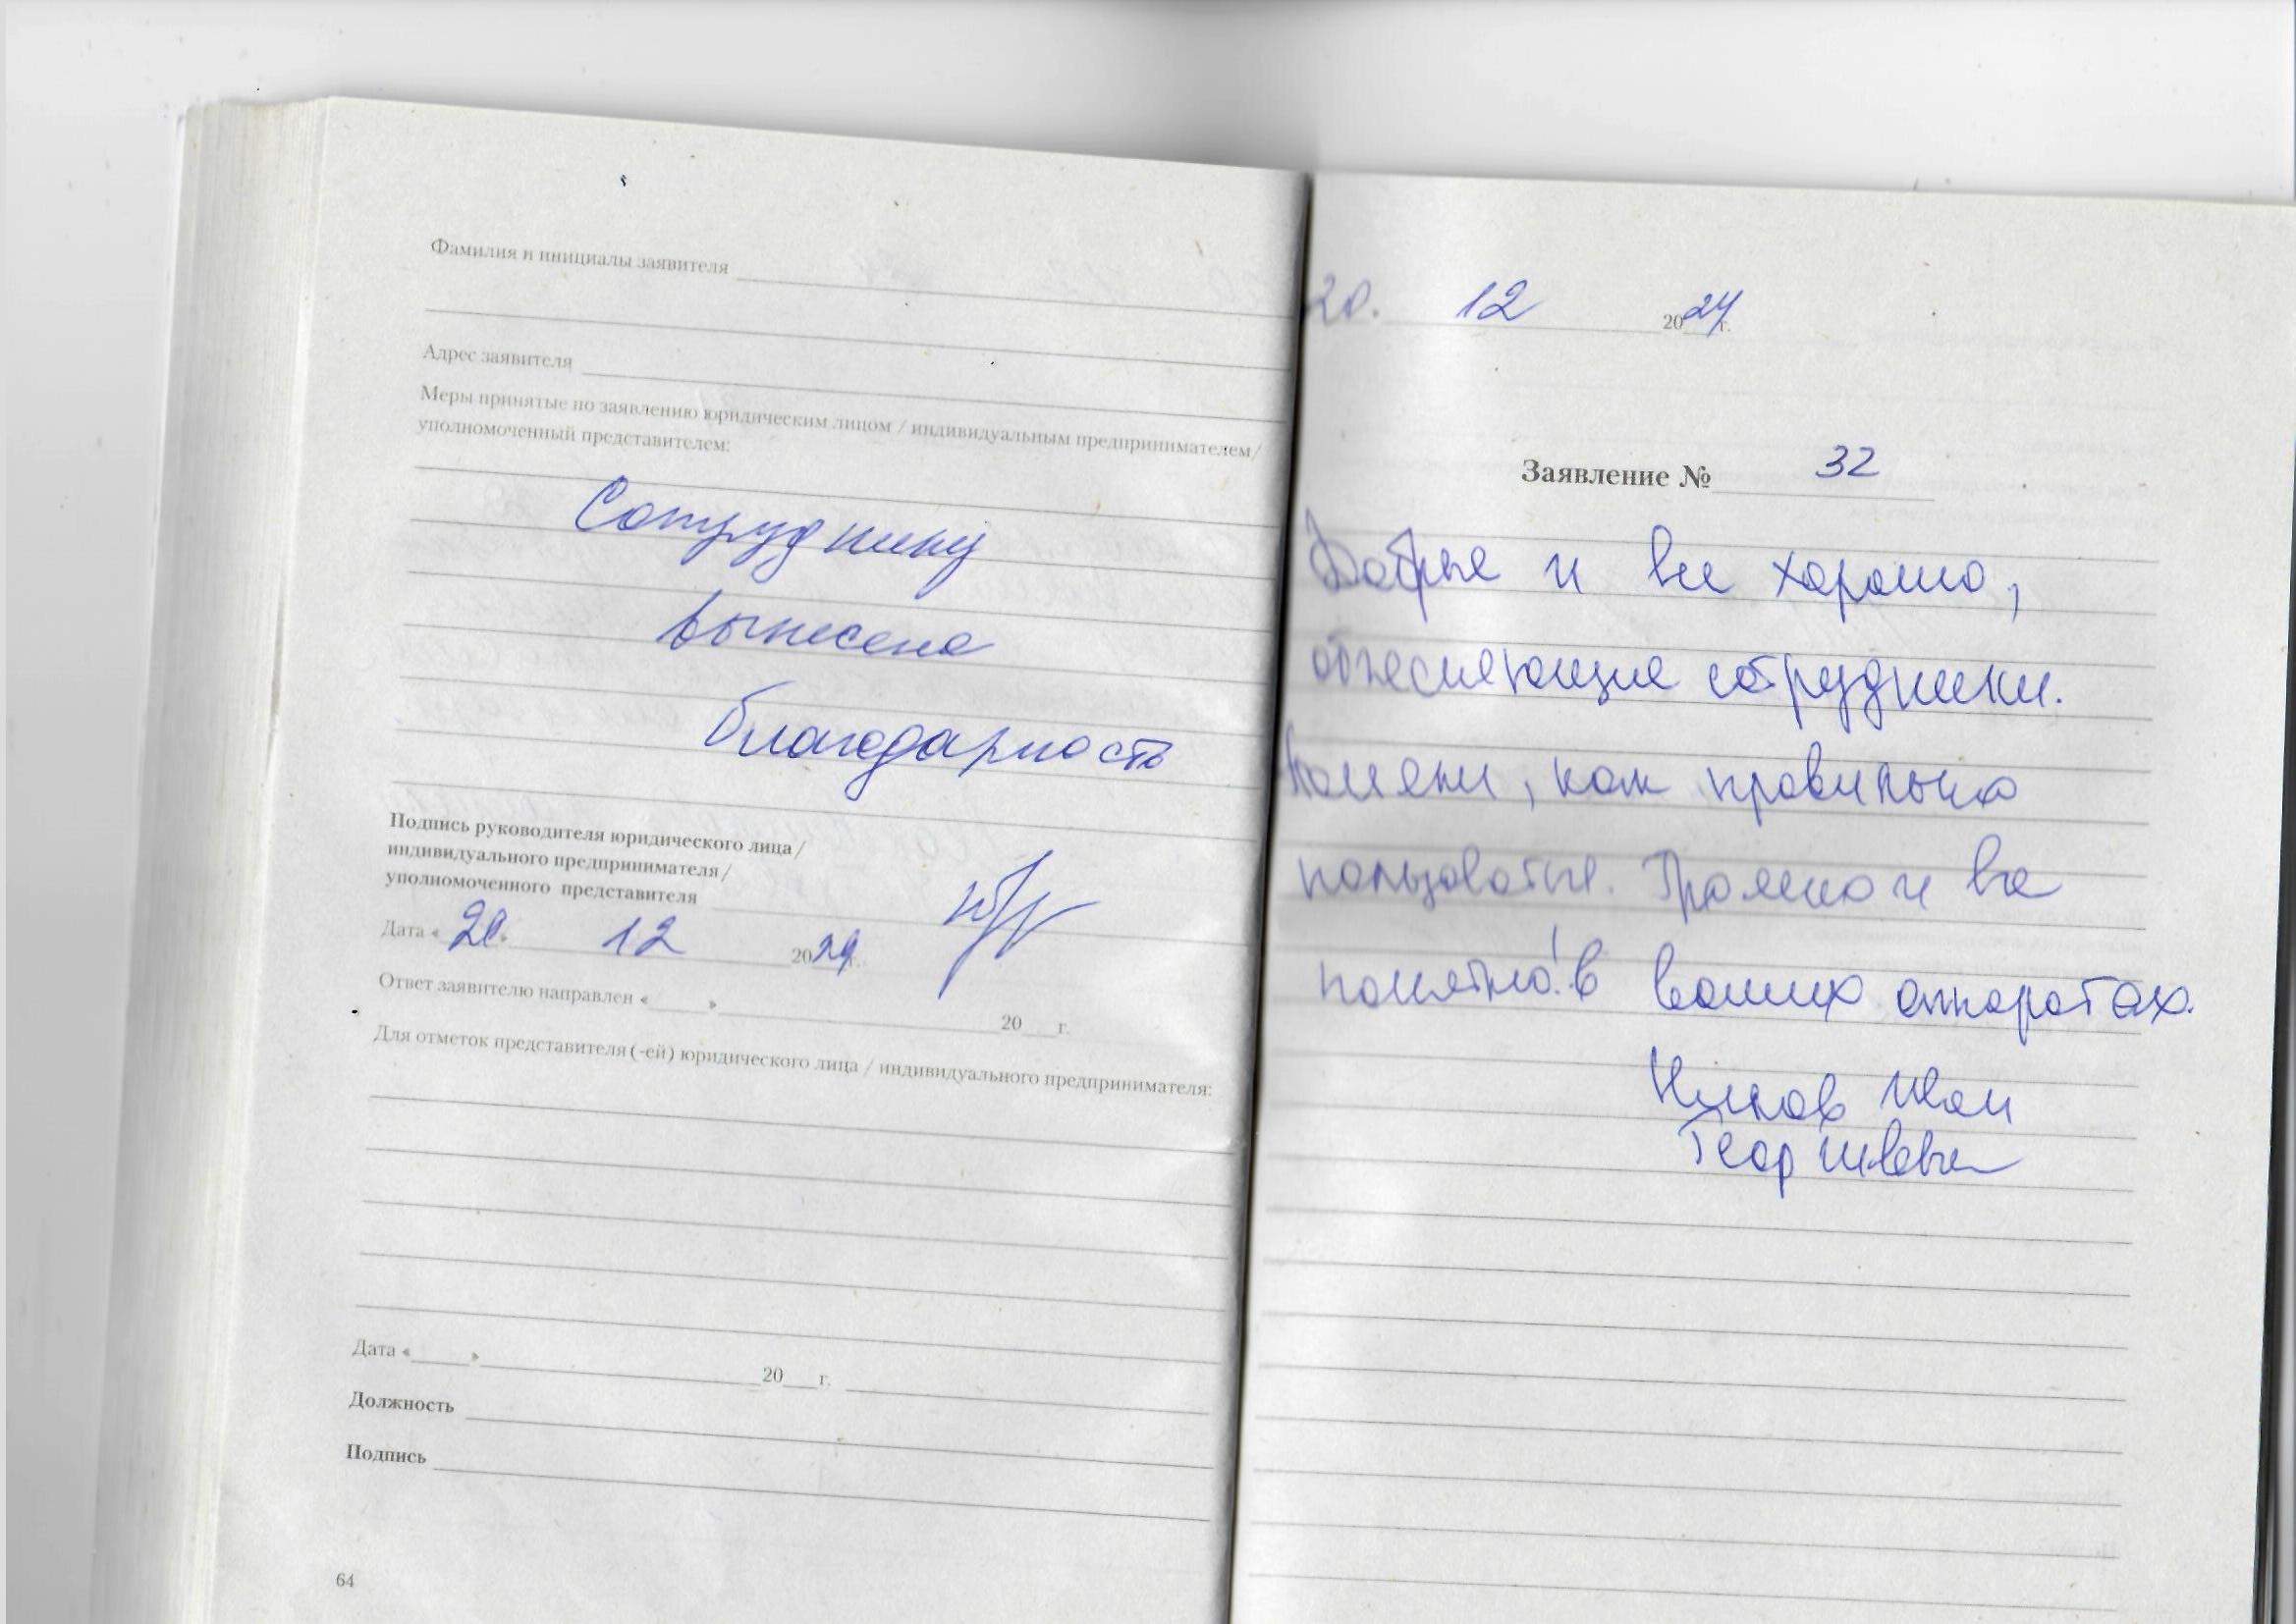 Фамилия и инициалы заявителя
Адрес заявителя
Меры принятые по заявлению юридическим лицом / индивидуальным предпринимателем/
уполномоченный представителем:
Сотруднику
вынесена
благодарность
Подпись руководителя юридического лица/
индивидуального предпринимателя/
уполномоченного представителя
Дата « 20. 12 2024г.
Ответ заявителю направлен « » 20 г.
Для отметок представителя(-ей) юридического лица / индивидуального предпринимателя:
Дата « » 20 г.
Должность
Подпись
64
20. 12 2024г.
Заявление № 32
Добрые и все хорошо,
сотрудники.
как правильно
пользоваться. и все
понятно! в ваших аппаратах.
Георгиевич